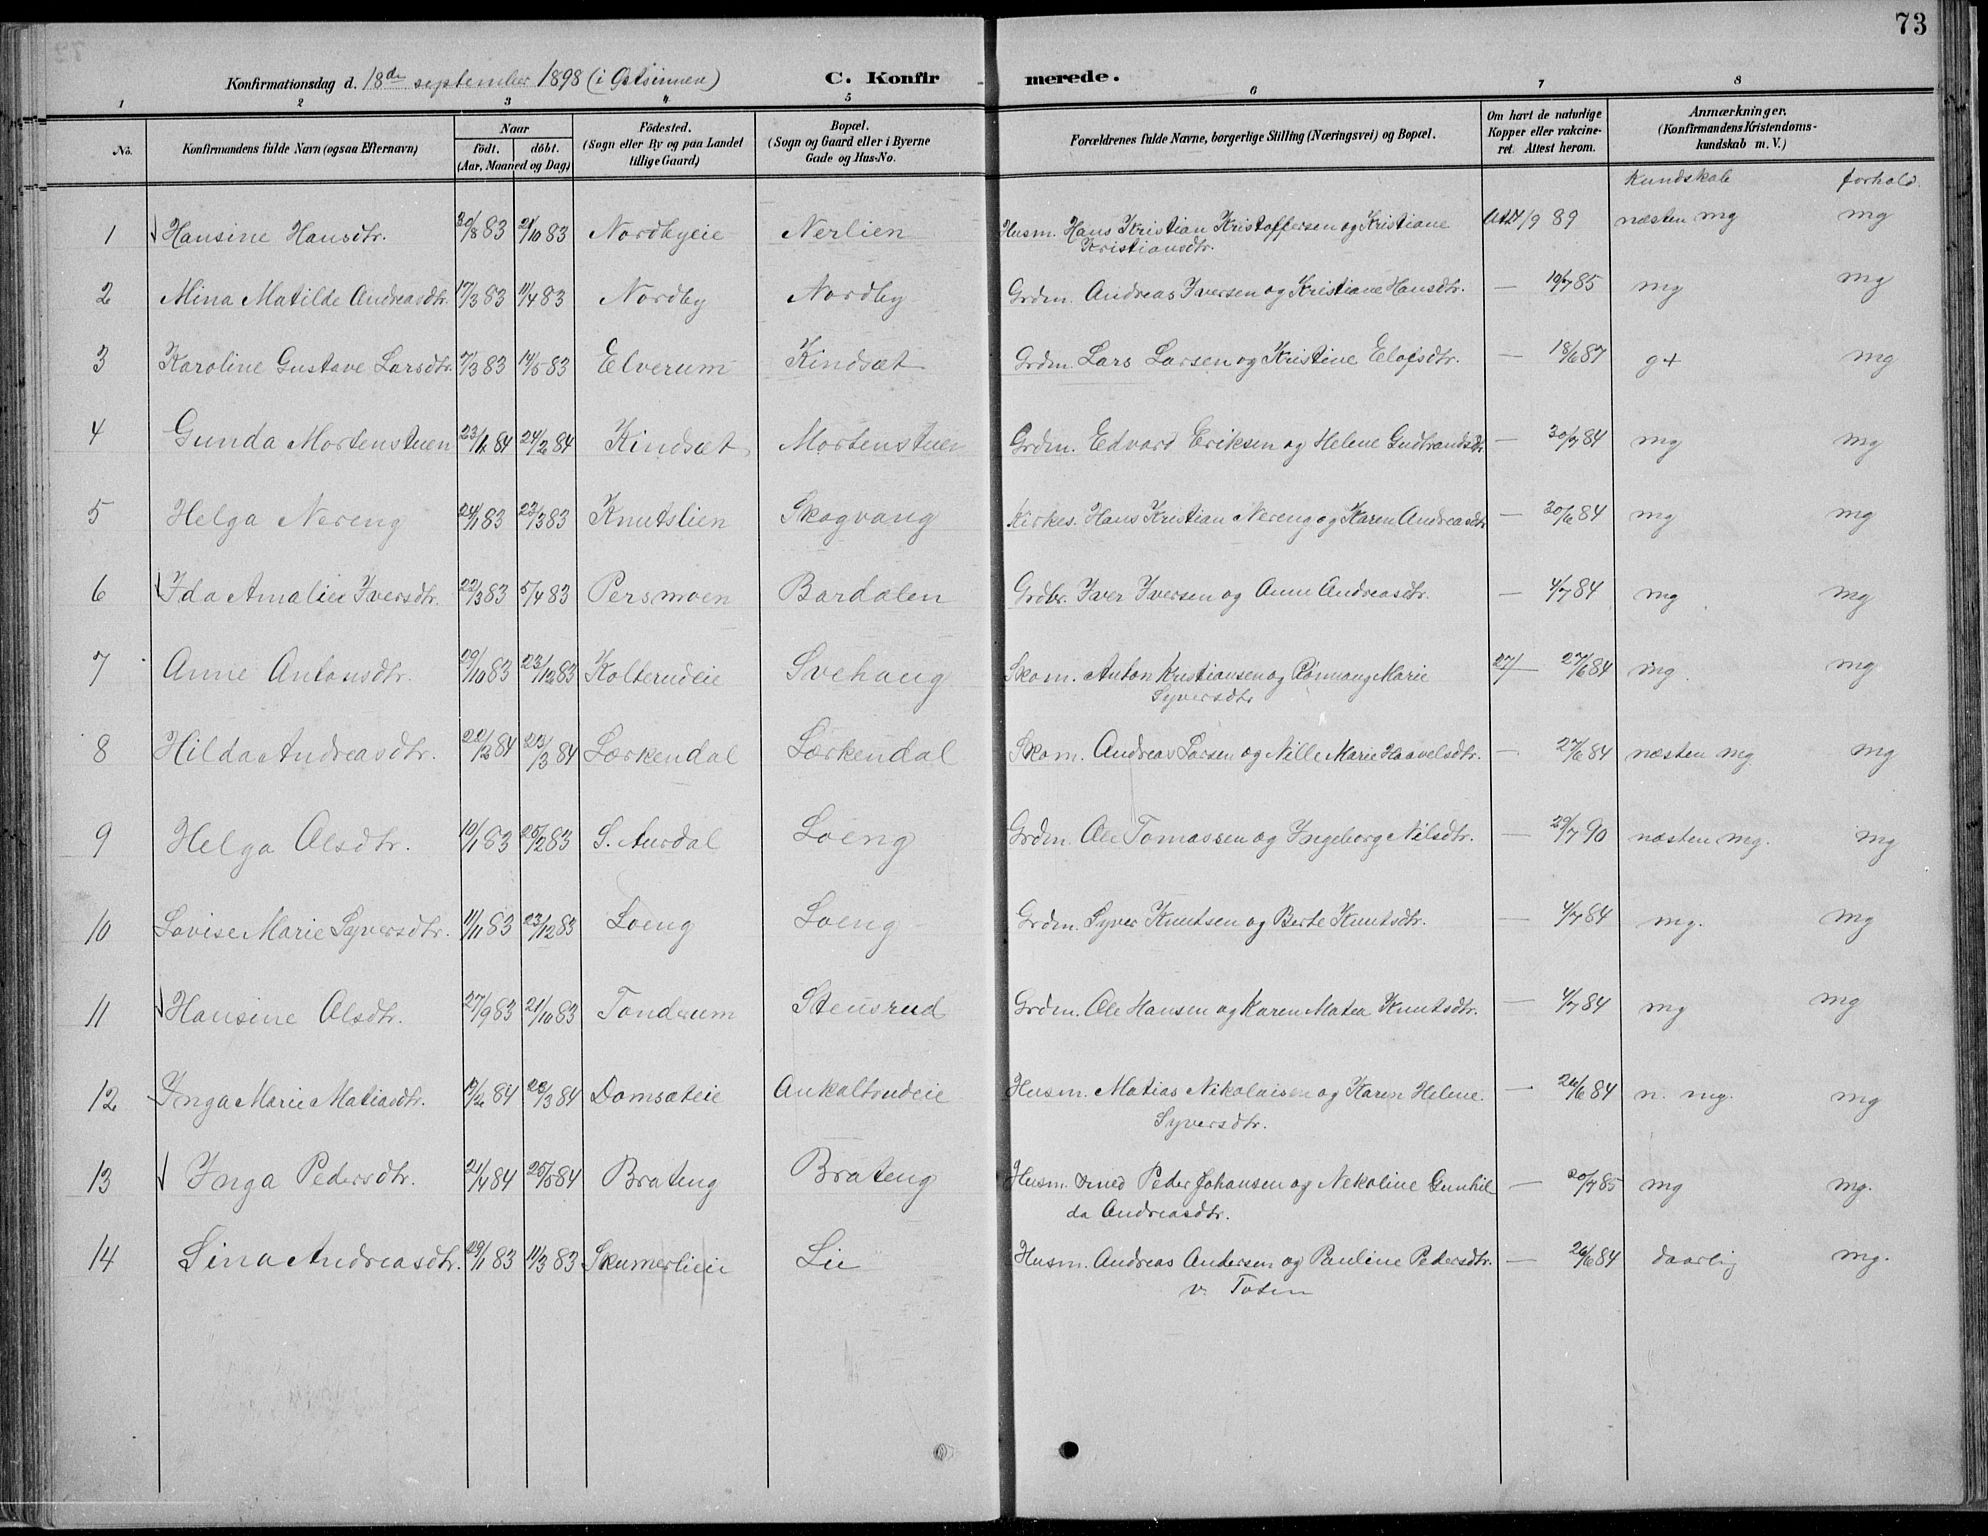 73
Konfirmationsdag d. 18de september 1898 (i Østsinnen) C. Konfirmerede.
1 2 3 4 5 6 7 8
No. Konfirmandens fulde Navn (ogsaa Efternavn) Naar födt. döbt. (Aar, Maaned og Dag) Födested. (Sogn eller By og paa Landet tillige Gaard) Bopæl. (Sogn og Gaard eller i Byerne Gade og Hus-No. Forældrenes fulde Navne, borgerlige Stilling (Næringsvei) og Bopæl. Om havt de naturlige Kopper eller vakcineret. Attest herom. Anmærkninger. (Konfirmandens Kristendomskundskab m. V.)
Kundskab forhold
1 Hansine Hansdtr. 30/8 83 21/10 83 Nordbyeie Nerlien Husm. Hans Kristian Kristoffersen og Kristiane 89 næsten mg mg
Kristiansdtr.
2 Mina Matilde Andreasdtr. 17/3 83 11/4 83 Nordby Nordby Grdm. Andreas Iversen og Kristiane Hansdtr. — 85 mg mg
3 Karoline Gustave Larsdtr. 7/3 83 14/5 83 Elverum Kindsæt Grdm. Lars Larsen og Kristine Elofsdtr. — 18/6 87 g+ mg
4 Gunda Mortenstuen 23/1 84 24/2 84 Kindsæt Mortenstuen Grdm. Edvard Eriksen og Helene Gudbrandsdtr. — 30/7 84 mg mg
5 Helga Nereng 24/1 83 23/3 83 Knutslien Skogvang Kirkes. Hans Kristian Nereng og Karen Andreasdtr — 30/6 84 mg mg
6 Ida Amalie Iversdtr. 22/3 83 5/4 83 Persmoen Bardalen Grdbr. Iver Iversen og Anne Andreasdtr. — 4/7 84 mg mg
7 Anne Antonsdtr. 29/10 83 23/12 83 Kolterudeie Svehaug Skom. Anton Kristiansen og Rønnaug Marie 27/— 27/6 84 mg. mg
Syversdtr
8 Hilda Andreasdtr. 22/2 84 23/3 84 Lærkendal Lærkendal Skom. Andreas Larsen og Nille Marie Haavelsdtr. — 27/6 84 næsten mg mg
9 Helga Olsdtr. 10/1 83 25/2 83 S. Aurdal Loeng Grdm. Ole Tomassen og Ingeborg Nilsdtr. — 29/7 90 næsten mg. mg
10 Lovise Marie Syversdtr. 11/11 83 23/12 83 Loeng Loeng Grdm. Syver Knutsen og Berte Knutsdtr. — 4/7 84 mg. mg
11 Hansine Olsdtr. 27/9 83 21/10 83 Tondrum Stensrud Grdm. Ole Hansen og Karen Matea Knutsdtr. — 4/7 84 mg mg
12 Inga Marie Matiasdtr. 84 23/3 84 Domsateie Husm. Matias Nikolaisen og Karen Helene — 26/6 84 n. mg. mg
Syversdtr.
13 Inga Pedersdtr. 21/4 84 25/5 84 Brateng Brateng Husm. Peder Johansen og Nekoline Gunhil — 20/7 85 mg mg.
da Andreasdtr.
14 Lina Andreasdtr. 29/1 83 11/3 83 Skumerlieie Lie Husm. Andreas Andersen og Pauline Pedersdtr. — 26/6 84 daarlig mg.
v. Toten